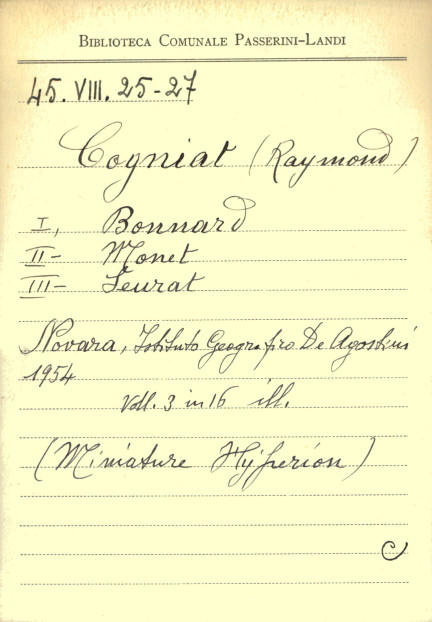 BIBLIOTECA COMUNALE PASSERINI-LANDI
45. VIII. 25-27
Cogniat (Raymond)
I, Bonnard
II- Monet
III- Seurat
Novara, Istituto Geografico De Agostini
1954
Voll. 3 in 16 ill.
(Miniature Hyperion)
C